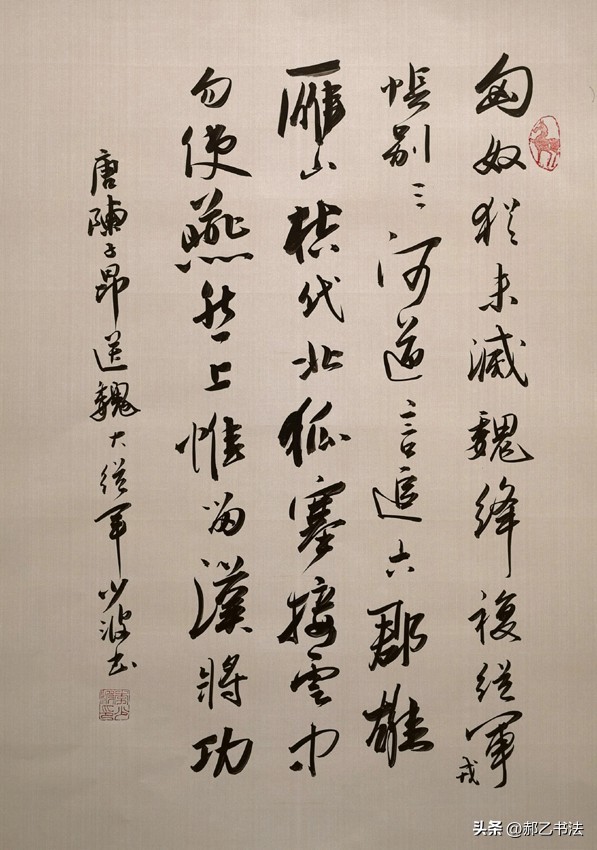 匈奴猶未滅魏絳複從軍
戎
悵別三河道言追六郡雄
雁山橫代北狐塞接雲中
勿使燕然上惟留漢將功
唐陳子昂送魏大從軍少波書
头条 @郝乙书法